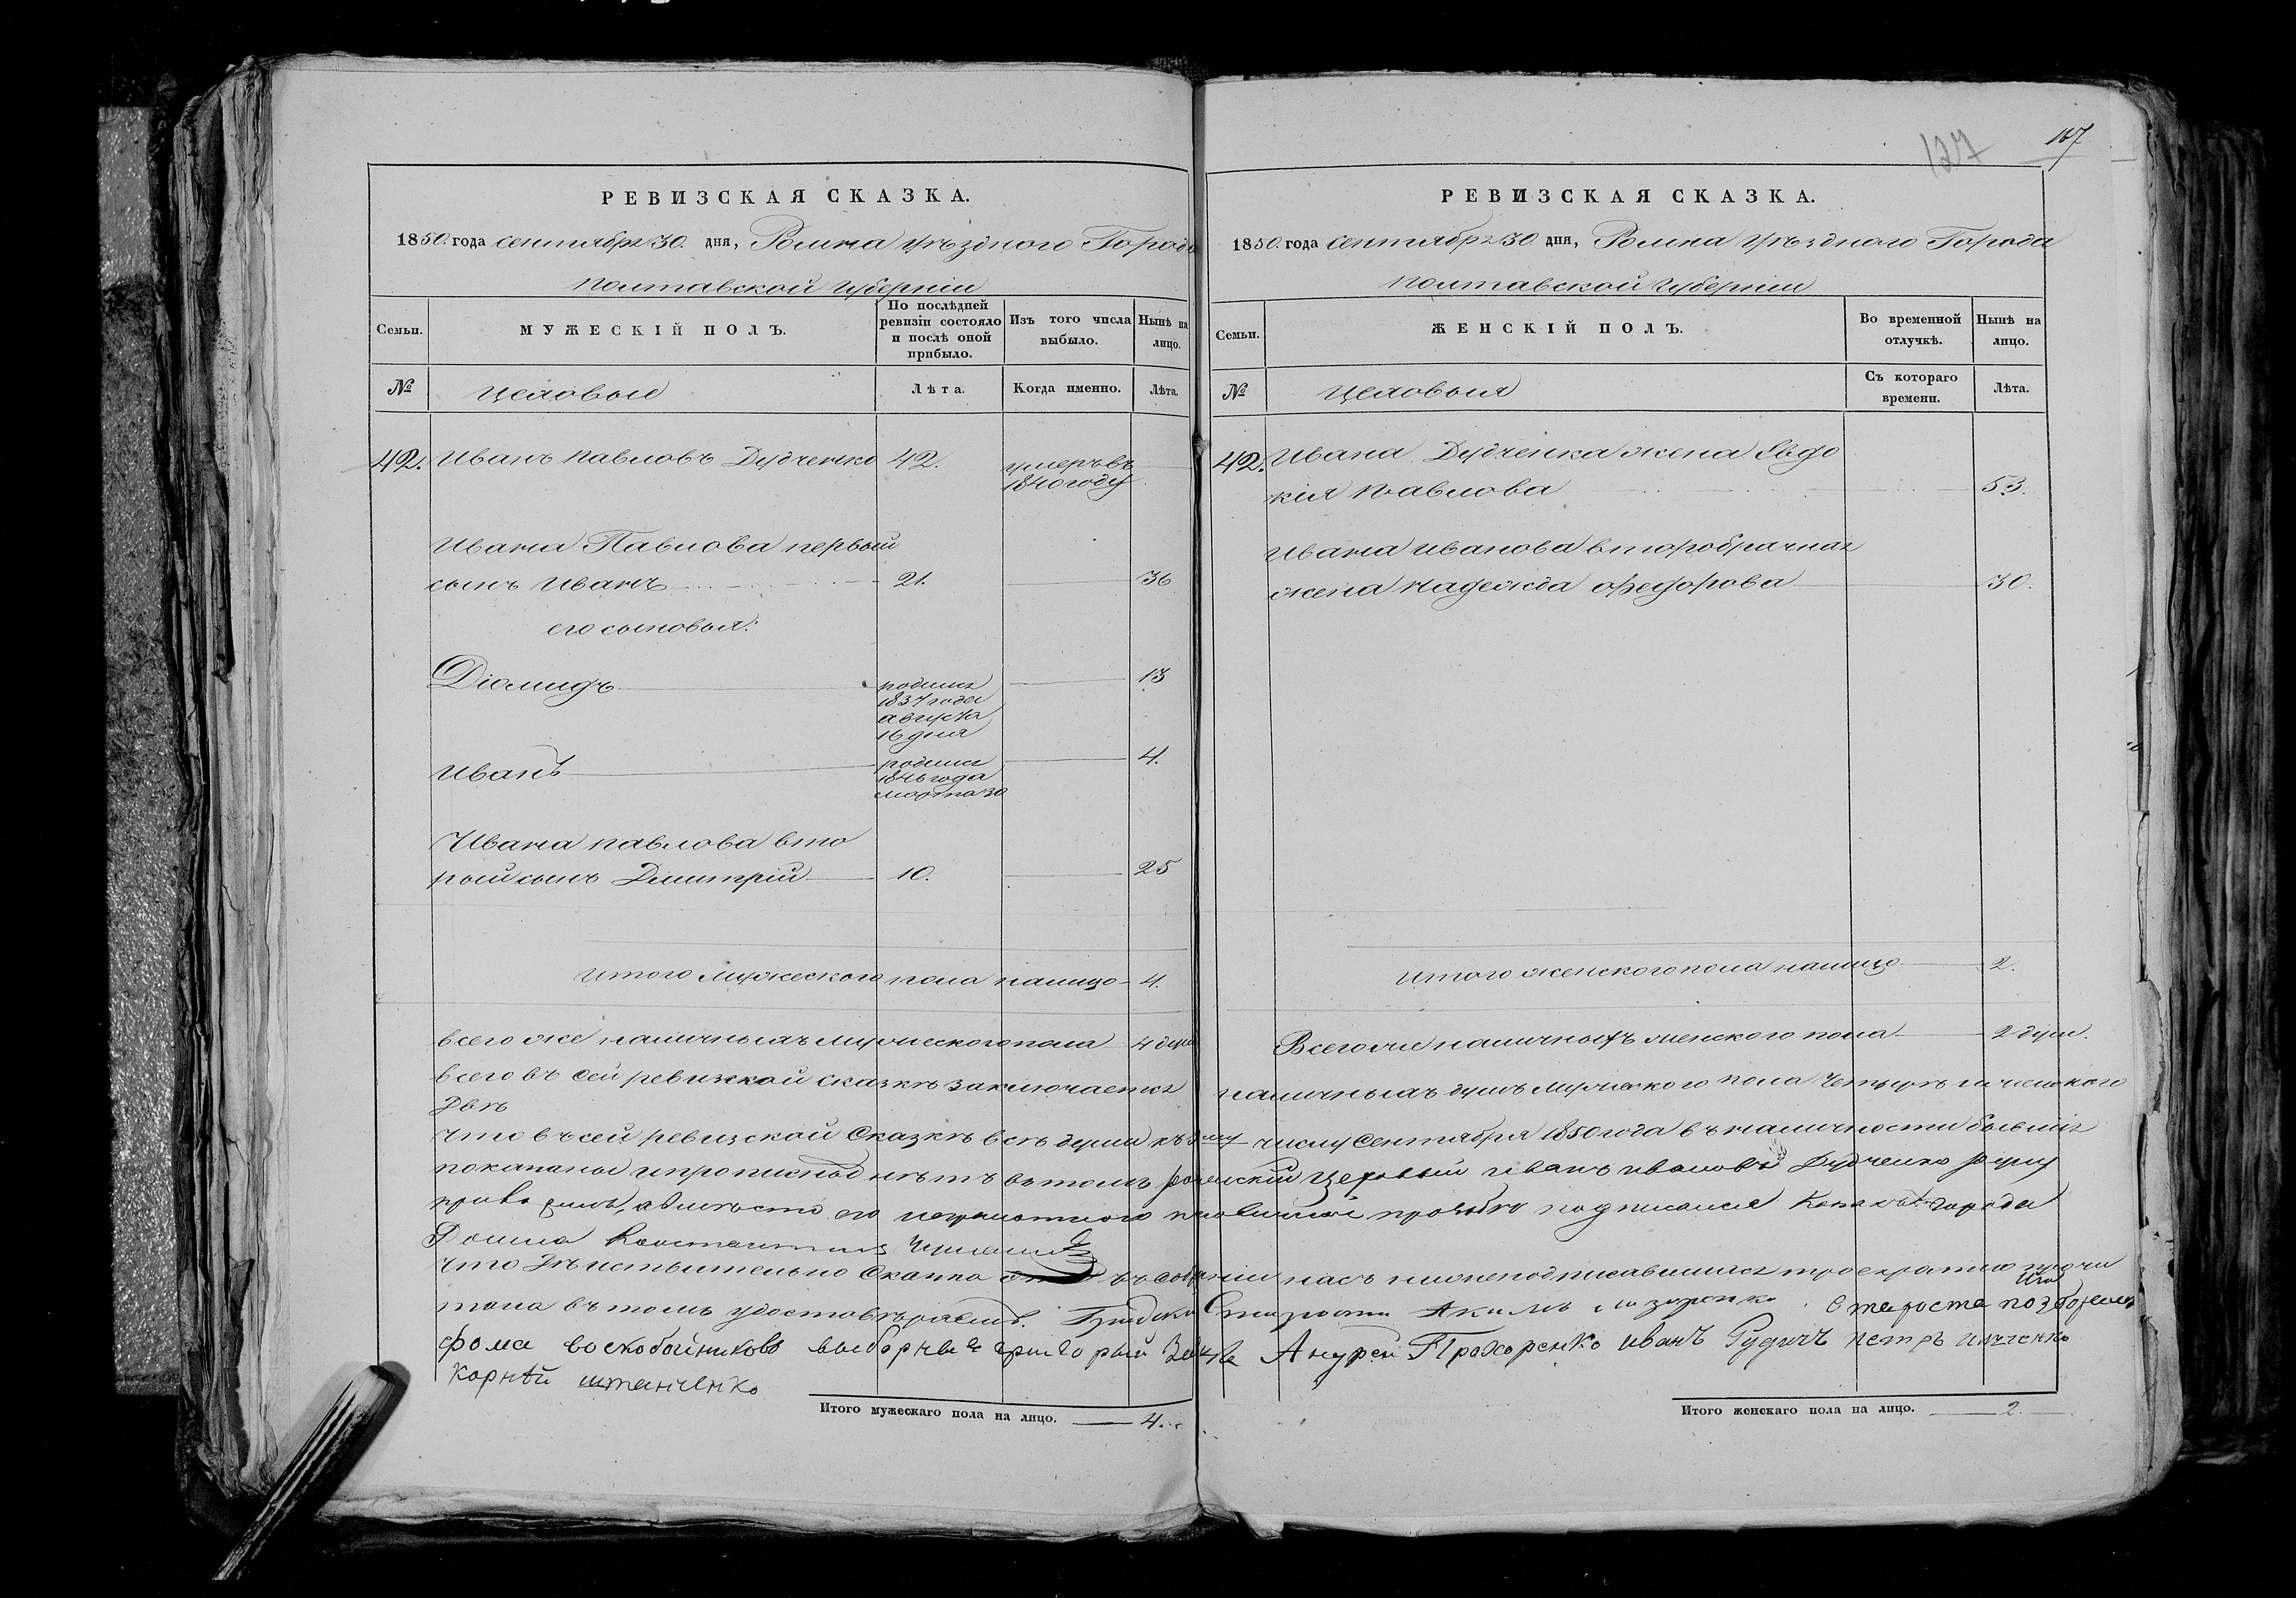 127
167
РЕВИЗСКАЯ СКАЗКА.
1850. года сентября 30. дня, Ромна уѣзднаго Города
Полтавской Губерніи
Семьи.
МУЖЕСКІЙ ПОЛЪ.
По послѣдней ревизіи состояло и послѣ оной прибыло.
Изъ того числа выбыло.
Нынѣ на лицо.
№
Цеховые
Лѣта.
Когда именно.
Лѣта.
42. Иванъ Павловъ Дудченко 42. умеръ въ
1840 году
Ивана Павлова первый
сынъ Иванъ 21. 36
его сыновья:
Діомидъ родился 13
1837 года
августа
16 дня
Иванъ родился 4.
1846 года
марта 30
Ивана Павлова вто
рой сынъ Дмитрій 10. 25
Итого мужеского пола налицо 4.
всего же наличныхъ мужеского пола 4 души
РЕВИЗСКАЯ СКАЗКА.
1850. года сентября 30. дня, Ромна уѣзднаго Города
Полтавской Губерніи
Семьи.
ЖЕНСКІЙ ПОЛЪ.
Во временной отлучкѣ.
Нынѣ на лицо.
№
Цеховыя
Съ котораго времени.
Лѣта.
42. Ивана Дудченка жена Евдо
кія Павлова 53.
Ивана Иванова второбрачная
жена Надежда Федорова 30.
Итого женского пола налицо 2.
Всего же наличныхъ женского пола 2 души.
всего въ сей ревизкой сказкѣ заключается наличныхъ душъ мужеского пола четыре и женского
Двѣ
что въ сей ревизской Сказкѣ всѣ души къ числу Сентября 1850 года въ наличности бывшія
показаны и прописныхъ нѣтъ въ томъ роменскій цеховый иванъ ивановъ Дудченко руку
подписался города
Ромна Константинъ
что Дѣйствительно Сказка въ собраніи насъ нижеподписавшихся троекратно прочи
тана въ томъ удостовѣряемъ. Староста Акимъ Староста
Фома воскобойниковъ выборные григорый Андрей Прохоренко иванъ Рудичъ петръ
Корнѣй штанченко
Итого мужескаго пола на лицо. 4.
Итого женскаго пола на лицо. 2.